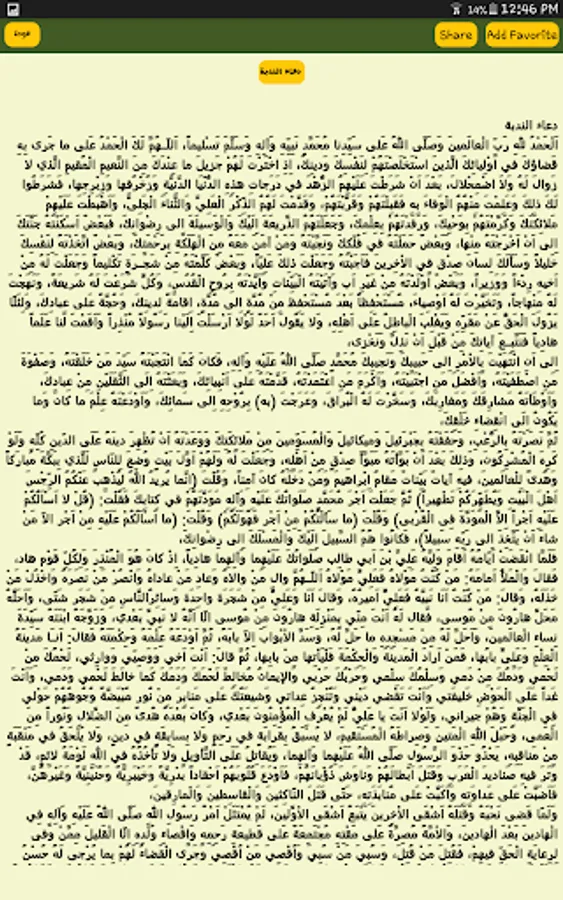 14% 12:46 PM
عودة Share Add Favorite
دعاء الندبة
دعاء الندبة
اَلْحَمْدُ للهِ رَبِّ الْعالَمينَ وَصَلَّى اللهُ عَلى سَيِّدِنا مُحَمَّد نَبِيِّهِ وَآلِهِ وَسَلَّمَ تَسْليماً، اَللّـهُمَّ لَكَ الْحَمْدُ عَلى ما جَرى بِهِ
قَضاؤُكَ في اَوْلِيائِكَ الَّذينَ اسْتَخْلَصْتَهُمْ لِنَفْسِكَ وَدينِكَ، اِذِ اخْتَرْتَ لَهُمْ جَزيلَ ما عِنْدَكَ مِنَ النَّعيمِ الْمُقيمِ الَّذي لا
زَوالَ لَهُ وَلاَ اضْمِحْلالَ، بَعْدَ اَنْ شَرَطْتَ عَلَيْهِمُ الزُّهْدَ في دَرَجاتِ هذِهِ الدُّنْيا الدَّنِيَّةِ وَزُخْرُفِها وَزِبْرِجِها، فَشَرَطُوا
لَكَ ذلِكَ وَعَلِمْتَ مِنْهُمُ الْوَفاءَ بِهِ فَقَبِلْتَهُمْ وَقَرَّبْتَهُمْ، وَقَدَّمْتَ لَهُمُ الذِّكْرَ الْعَلِيَّ وَالثَّناءَ الْجَلِىَّ، وَاَهْبَطْتَ عَلَيْهِمْ
مَلائِكَتَكَ وَكَرَّمْتَهُمْ بِوَحْيِكَ، وَرَفَدْتَهُمْ بِعِلْمِكَ، وَجَعَلْتَهُمُ الذَّريعَةَ اِلَيْكَ وَالْوَسيلَةَ اِلى رِضْوانِكَ، فَبَعْضٌ اَسْكَنْتَهُ جَنَّتَكَ
اِلى اَنْ اَخْرَجْتَهُ مِنْها، وَبَعْضٌ حَمَلْتَهُ في فُلْكِكَ وَنَجَّيْتَهُ وَمَنْ آمَنَ مَعَهُ مِنَ الْهَلَكَةِ بِرَحْمَتِكَ، وَبَعْضٌ اتَّخَذْتَهُ لِنَفْسِكَ
خَليلاً وَسَأَلَكَ لِسانَ صِدْق فِي الاْخِرينَ فَاَجَبْتَهُ وَجَعَلْتَ ذلِكَ عَلِيّاً، وَبَعْضٌ كَلَّمْتَهُ مِنْ شَجَـرَة تَكْليماً وَجَعَلْتَ لَهُ مِنْ
اَخيهِ رِدْءاً وَوَزيراً، وَبَعْضٌ اَوْلَدْتَهُ مِنْ غَيْرِ اَب وَآتَيْتَهُ الْبَيِّناتِ وَاَيَّدْتَهُ بِرُوحِ الْقُدُسِ، وَكُلٌّ شَرَعْتَ لَهُ شَريعَةً، وَنَهَجْتَ
لَهُ مِنْهاجاً، وَتَخَيَّرْتَ لَهُ اَوْصِياءَ، مُسْتَحْفِظاً بَعْدَ مُسْتَحْفِظ مِنْ مُدَّة اِلى مُدَّة، اِقامَةً لِدينِكَ، وَحُجَّةً عَلى عِبادِكَ، وَلِئَلّا
يَزُولَ الْحَقُّ عَنْ مَقَرِّهِ وَيَغْلِبَ الْباطِلُ عَلى اَهْلِهِ، وَلا يَقُولَ اَحَدٌ لَوْلا اَرْسَلْتَ اِلَيْنا رَسُولاً مُنْذِراً وَاَقَمْتَ لَنا عَلَماً
هادِياً فَنَتَّبِـعَ آياتِكَ مِنْ قَبْلِ اَنْ نَذِلَّ وَنَخْزى،
اِلى اَنِ انْتَهَيْتَ بِالاْمْرِ اِلى حَبيبِكَ وَنَجيبِكَ مُحَمَّد صَلَّى اللهُ عَلَيْهِ وَآلِهِ، فَكانَ كَمَا انْتَجَبْتَهُ سَيِّدَ مَنْ خَلَقْتَهُ، وَصَفْوَةَ
مَنِ اصْطَفَيْتَهُ، وَاَفْضَلَ مَنِ اجْتَبَيْتَهُ، وَاَكْرَمَ مَنِ اعْتَمَدْتَهُ، قَدَّمْتَهُ عَلى اَنْبِيائِكَ، وَبَعَثْتَهُ اِلَى الثَّقَلَيْنِ مِنْ عِبادِكَ،
وَاَوْطَأتَهُ مَشارِقَكَ وَمَغارِبَكَ، وَسَخَّرْتَ لَهُ الْبُراقَ، وَعَرَجْتَ (بِهِ) بِرُوْحِهِ اِلى سَمائِكَ، وَاَوْدَعْتَهُ عِلْمَ ما كانَ وَما
يَكُونُ اِلَى انْقِضاءِ خَلْقِكَ،
ثُمَّ نَصَرْتَهُ بِالرُّعْبِ، وَحَفَفْتَهُ بِجَبْرَئيلَ وَميكائيلَ وَالْمُسَوِّمينَ مِنْ مَلائِكَتِكَ وَوَعَدْتَهُ اَنْ تُظْهِرَ دينَهُ عَلَى الدّينِ كُلِّهِ وَلَوْ
كَرِهَ الْمُشْرِكُونَ، وَذلِكَ بَعْدَ اَنْ بَوَّأتَهُ مُبَوَّأَ صِدْق مِنْ اَهْلِهِ، وَجَعَلْتَ لَهُ وَلَهُمْ اَوَّلَ بَيْت وُضِعَ لِلنّاسِ لَلَّذي بِبَكَّةَ مُبارَكاً
وَهُدىً لِلْعالَمينَ، فيهِ آياتٌ بَيِّناتٌ مَقامُ اِبْراهيمَ وَمَنْ دَخَلَهُ كانَ آمِناً، وَقُلْتَ (اِنَّما يُريدُ اللهُ لِيُذْهِبَ عَنْكُمُ الرِّجْسَ
اَهْلَ الْبَيْتِ وَيُطَهِّرَكُمْ تَطْهيراً) ثُمَّ جَعَلْتَ اَجْرَ مُحَمَّد صَلَواتُكَ عَلَيْهِ وَآلِهِ مَوَدَّتَهُمْ في كِتابِكَ فَقُلْتَ: (قُلْ لا اَسْأَلُكُمْ
عَلَيْهِ اَجْراً اِلاَّ الْمَوَدَّةَ فِي الْقُرْبى) وَقُلْتَ (ما سَأَلْتُكُمْ مِنْ اَجْر فَهُوَلَكُمْ) وَقُلْتَ: (ما اَسْأَلُكُمْ عَلَيْهِ مِنْ اَجْر اِلاّ مَنْ
شاءَ اَنْ يَتَّخِذَ اِلى رَبِّهِ سَبيلاً)، فَكانُوا هُمُ السَّبيلَ اِلَيْكَ وَالْمَسْلَكَ اِلى رِضْوانِكَ،
فَلَمَّا انْقَضَتْ اَيّامُهُ اَقامَ وَلِيَّهُ عَلِيَّ بْنَ اَبي طالِب صَلَواتُكَ عَلَيْهِما وَآلِهِما هادِياً، اِذْ كانَ هُوَ الْمُنْذِرَ وَلِكُلِّ قَوْم هاد،
فَقالَ وَالْمَلأُ اَمامَهُ: مَنْ كُنْتُ مَوْلاهُ فَعَلِيٌّ مَوْلاهُ اَللّـهُمَّ والِ مَنْ والاهُ وَعادِ مَنْ عاداهُ وَانْصُرْ مَنْ نَصَرَهُ وَاخْذُلْ مَنْ
خَذَلَهُ، وَقالَ: مَنْ كُنْتُ اَنَا نَبِيَّهُ فَعَلِيٌّ اَميرُهُ، وَقالَ اَنَا وَعَلِيٌّ مِنْ شَجَرَة واحِدَة وَسائِرُالنَّاسِ مِنْ شَجَر شَتّى، وَاَحَلَّهُ
مَحَلَّ هارُونَ مِنْ مُوسى، فَقال لَهُ اَنْتَ مِنّي بِمَنْزِلَةِ هارُونَ مِنْ مُوسى اِلاّ اَنَّهُ لا نَبِيَّ بَعْدي، وَزَوَّجَهُ ابْنَتَهُ سَيِّدَةَ
نِساءِ الْعالَمينَ، وَاَحَلَّ لَهُ مِنْ مَسْجِدِهِ ما حَلَّ لَهُ، وَسَدَّ الاْبْوابَ اِلاّ بابَهُ، ثُمَّ اَوْدَعَهُ عِلْمَهُ وَحِكْمَتَهُ فَقالَ: اَنـَا مَدينَةُ
الْعِلْمِ وَعَلِيٌّ بابُها، فَمَنْ اَرادَ الْمَدينَةَ وَالْحِكْمَةَ فَلْيَأتِها مِنْ بابِها، ثُمَّ قالَ: اَنْتَ اَخي وَوَصِيّي وَوارِثي، لَحْمُكَ مِنْ
لَحْمي وَدَمُكَ مِنْ دَمي وَسِلْمُكَ سِلْمي وَحَرْبُكَ حَرْبي وَالإيمانُ مُخالِطٌ لَحْمَكَ وَدَمَكَ كَما خالَطَ لَحْمي وَدَمي، وَاَنْتَ
غَداً عَلَى الْحَوْضِ خَليفَتي وَاَنْتَ تَقْضي دَيْني وَتُنْجِزُ عِداتي وَشيعَتُكَ عَلى مَنابِرَ مِنْ نُور مُبْيَضَّةً وُجُوهُهُمْ حَوْلي
فِي الْجَنَّةِ وَهُمْ جيراني، وَلَوْلا اَنْتَ يا عَلِيُّ لَمْ يُعْرَفِ الْمُؤْمِنُونَ بَعْدي، وَكانَ بَعْدَهُ هُدىً مِنَ الضَّلالِ وَنُوراً مِنَ
الْعَمى، وَحَبْلَ اللهِ الْمَتينَ وَصِراطَهُ الْمُسْتَقيمَ، لا يُسْبَقُ بِقَرابَة في رَحِم وَلا بِسابِقَة في دين، وَلا يُلْحَقُ في مَنْقَبَة
مِنْ مَناقِبِهِ، يَحْذُو حَذْوَ الرَّسُولِ صَلَّى اللهُ عَلَيْهِما وَآلِهِما، وَيُقاتِلُ عَلَى التَّأويلِ وَلا تَأخُذُهُ فِي اللهِ لَوْمَةُ لائِم، قَدْ
وَتَرَ فيهِ صَناديدَ الْعَرَبِ وَقَتَلَ اَبْطالَهُمْ وَناوَشَ ذُؤْبانَهُمْ، فَاَوْدَعَ قُلُوبَهُمْ اَحْقاداً بَدْرِيَّةً وَخَيْبَرِيَّةً وَحُنَيْنِيَّةً وَغَيْرَهُنَّ،
فَاَضَبَّتْ عَلى عَداوَتِهِ وَاَكَبَّتْ عَلى مُنابَذَتِهِ، حَتّى قَتَلَ النّاكِثينَ وَالْقاسِطينَ وَالْمارِقينَ،
وَلَمّا قَضى نَحْبَهُ وَقَتَلَهُ اَشْقَى الاْخِرينَ يَتْبَعُ اَشْقَى الاْوَّلينَ، لَمْ يُمْتَثَلْ اَمْرُ رَسُولِ اللهِ صَلَّى اللهُ عَلَيْهِ وَآلِهِ فِي
الْهادينَ بَعْدَ الْهادينَ، وَالاُمَّةُ مُصِرَّةٌ عَلى مَقْتِهِ مُجْتَمِعَةٌ عَلى قَطيعَةِ رَحِمِهِ وَاِقْصاءِ وُلْدِهِ اِلاَّ الْقَليلَ مِمَّنْ وَفى
لِرِعايَةِ الْحَقِّ فيهِمْ، فَقُتِلَ مَنْ قُتِلَ، وَسُبِيَ مَنْ سُبِيَ وَاُقْصِيَ مَنْ اُقْصِيَ وَجَرَى الْقَضاءُ لَهُمْ بِما يُرْجى لَهُ حُسْنُ